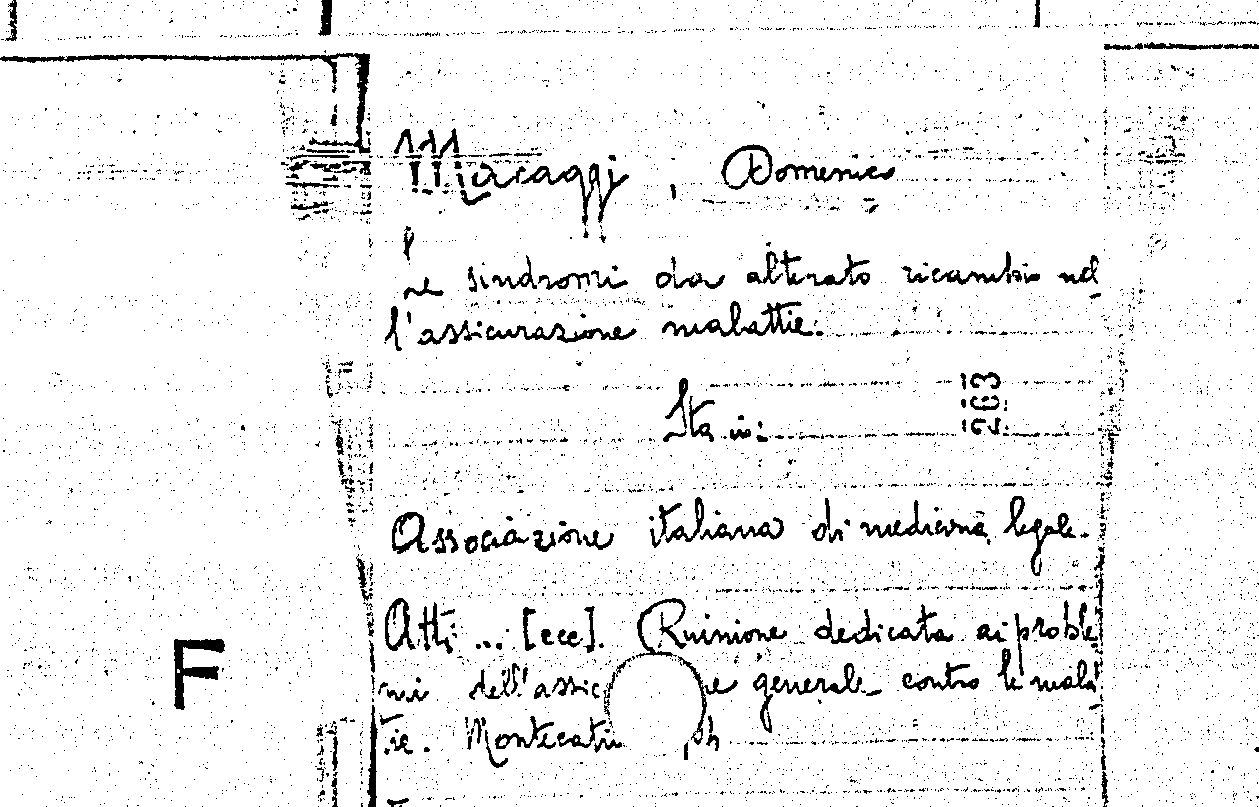 Macaggi, Domenico
Le sindromi da alterato ricambio nel
l'assicurazione malattie.
Sta in:
263
Associazione italiana di medicina legale.
Atti ... [ecc]. (Riunione dedicata ai proble
mi dell'assic e generale contro le malat
tie. Montecatini
F